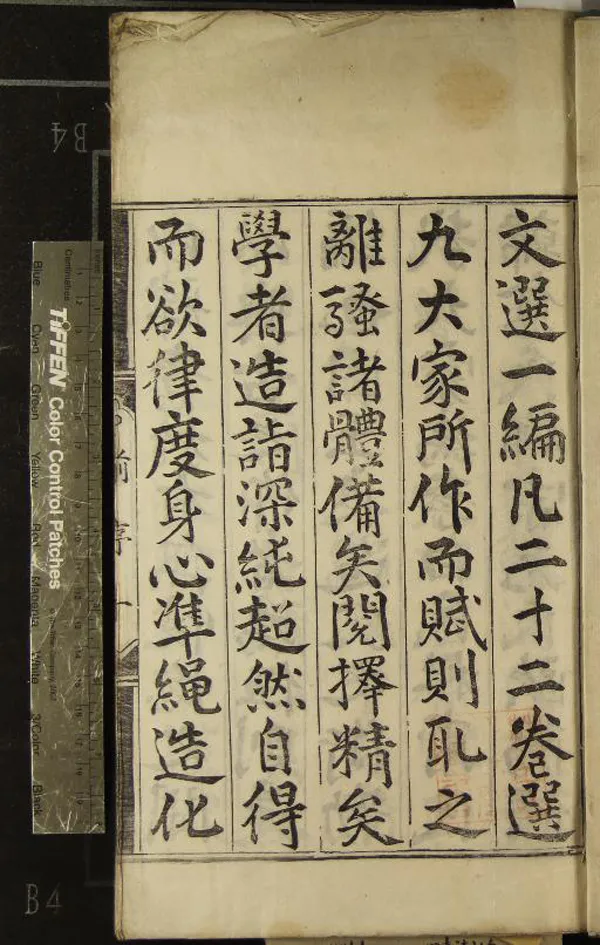 文選一編凡二十二卷選
九大家所作而賦則耴之
離騷諸體備矣閱擇精矣
學者造詣深純超然自得
而欲律度身心凖繩造化
前序 一
B4
B4
TIFFEN Color Control Patches
Centimetres
Blue
Cyan
Green
Yellow
Red
Magenta
White
3/Color
Black